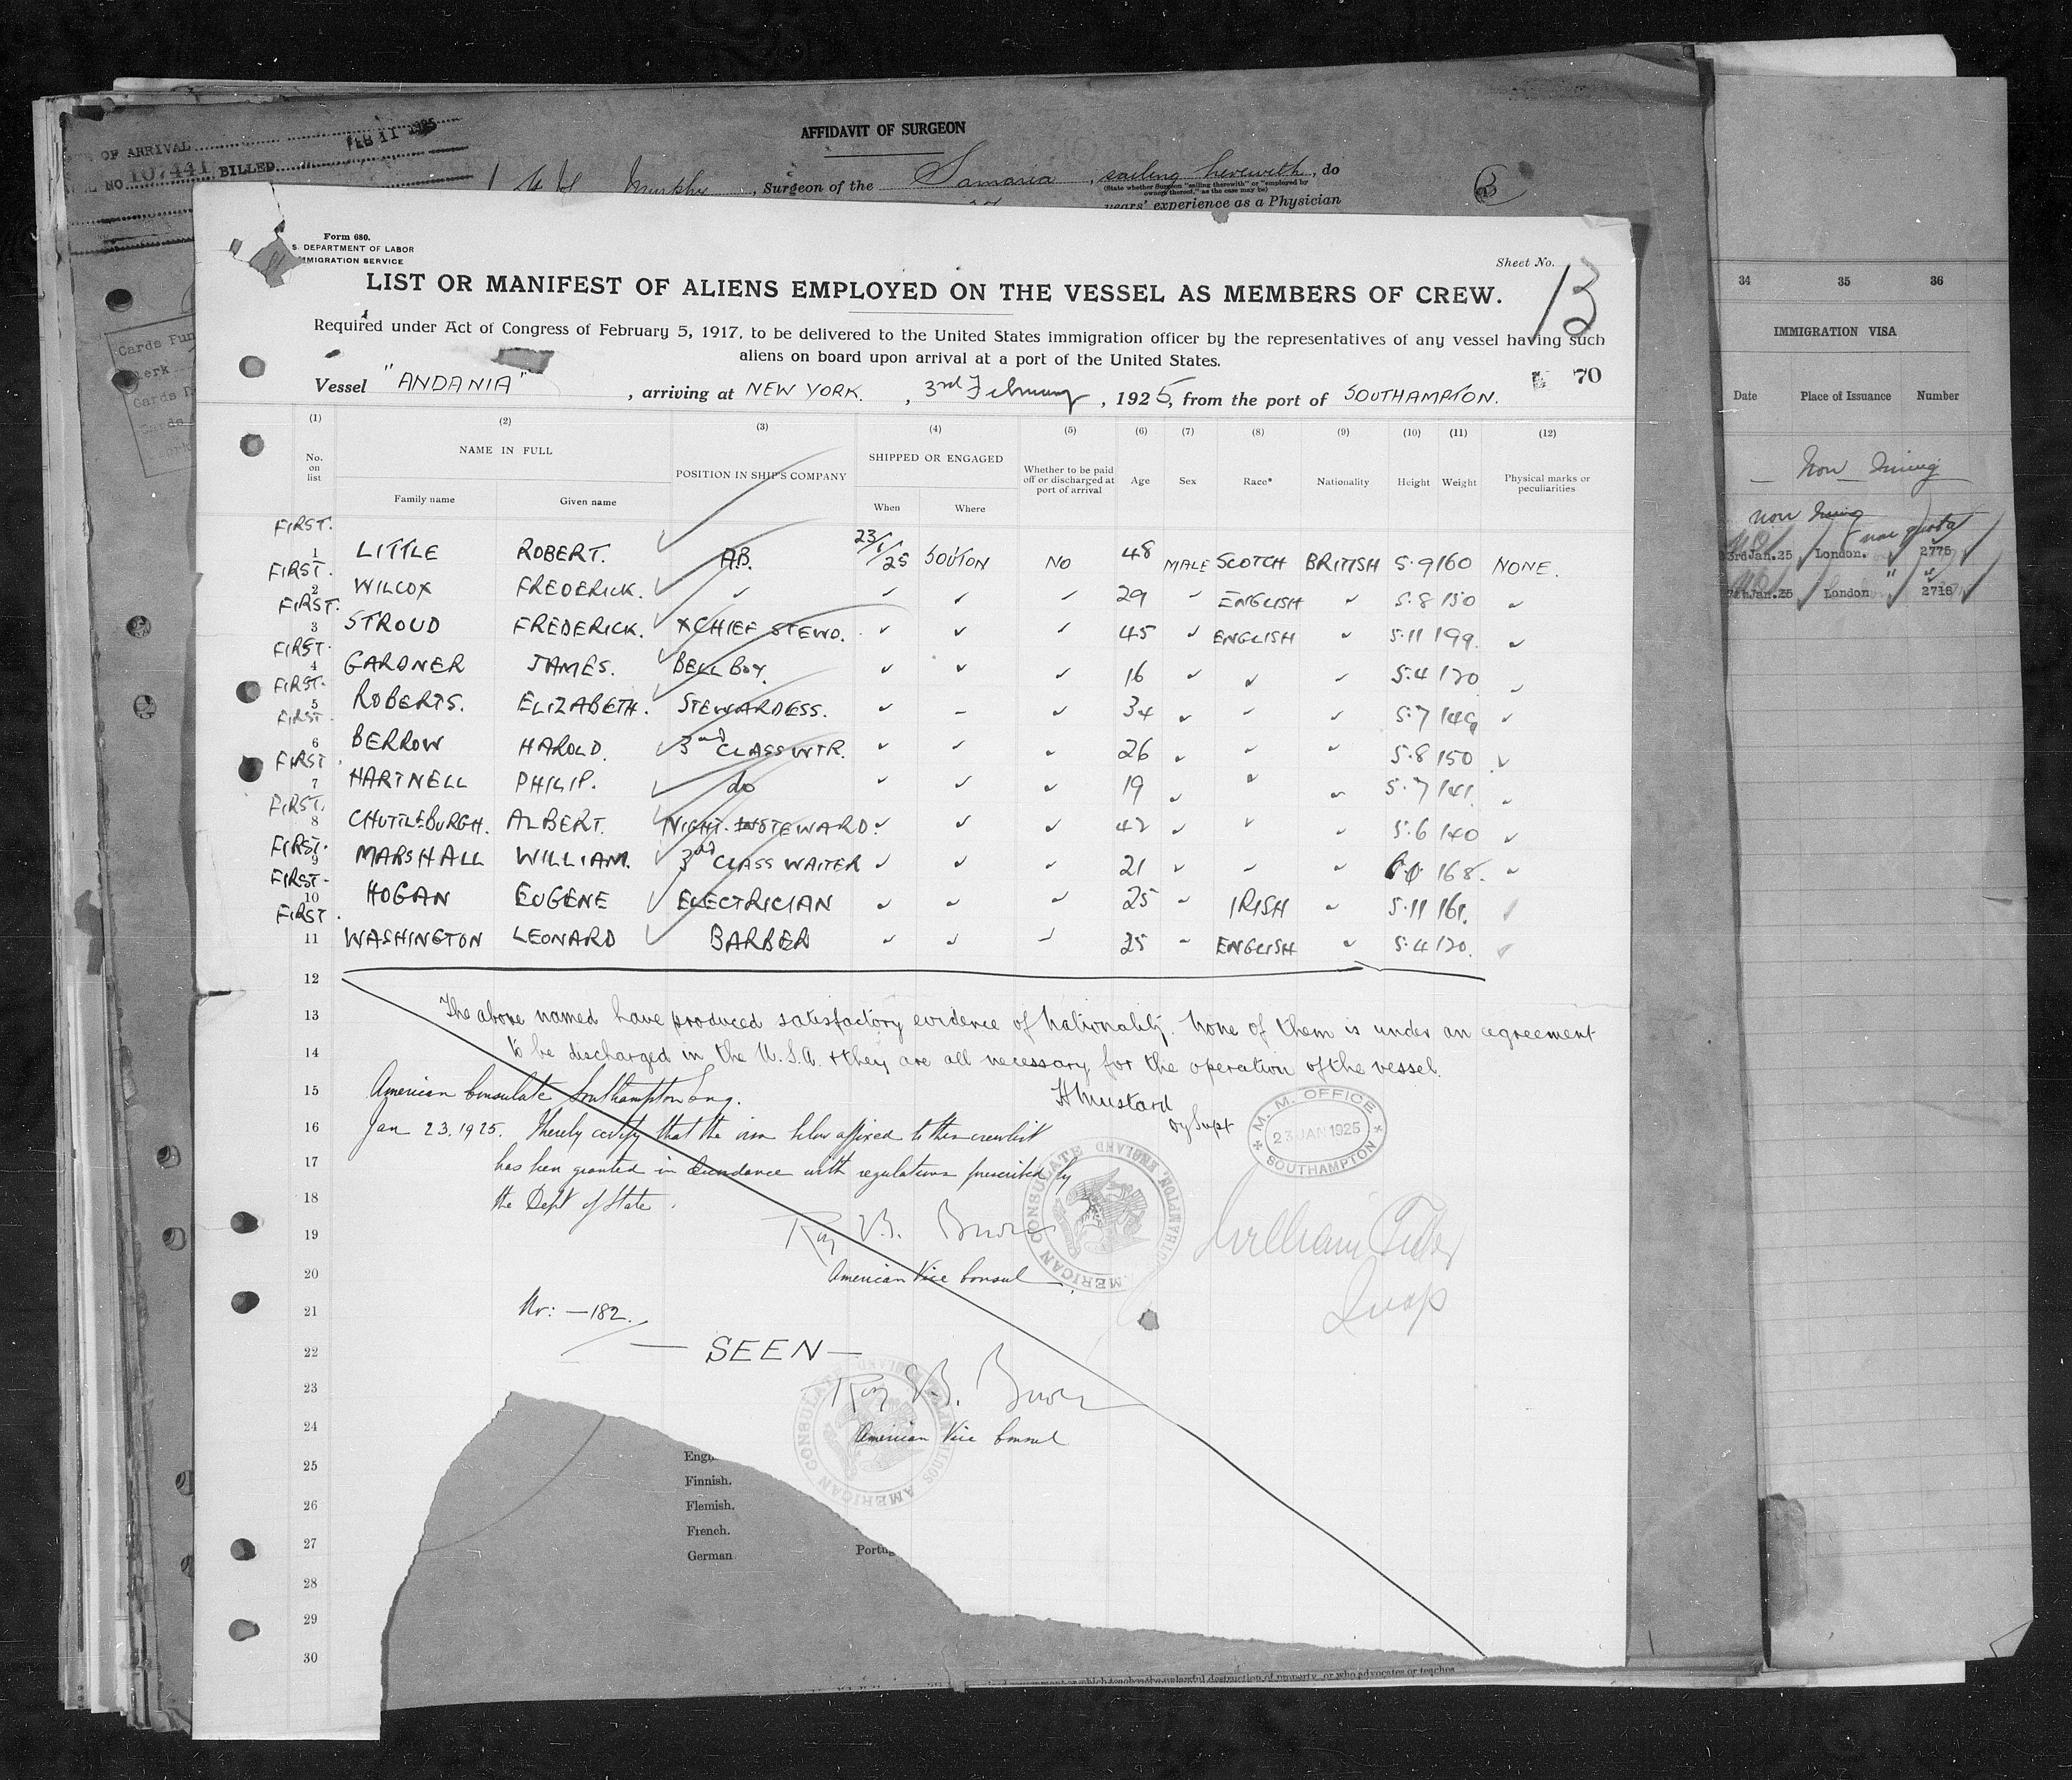 OF ARRIVAL FEB 11 1925
NO 107441 BILLED
AFFIDAVIT OF SURGEON
Murphy, Surgeon of the Samaria, sailing herewith, do
(State whether Surgeon "sailing therewith" or "employed by owners thereof," as the case may be)
years' experience as a Physician
Form 680.
S. DEPARTMENT OF LABOR
IMMIGRATION SERVICE
Sheet No. 13
LIST OR MANIFEST OF ALIENS EMPLOYED ON THE VESSEL AS MEMBERS OF CREW.
Required under Act of Congress of February 5, 1917, to be delivered to the United States immigration officer by the representatives of any vessel having such
aliens on board upon arrival at a port of the United States.
70
Vessel "ANDANIA", arriving at NEW YORK., 3rd February, 1925, from the port of SOUTHAMPTON.
(1) (2) (3) (4) (5) (6) (7) (8) (9) (10) (11) (12)
No. on list NAME IN FULL POSITION IN SHIP'S COMPANY SHIPPED OR ENGAGED Whether to be paid off or discharged at port of arrival Age Sex Race* Nationality Height Weight Physical marks or peculiarities
Family name Given name When Where
FIRST.
1 LITTLE ROBERT. A.B. 23/1/25 SO'TON NO 48 MALE SCOTCH BRITISH 5.9 160 NONE.
FIRST.
2 WILCOX FREDERICK. ✓ ✓ ✓ ✓ 29 ✓ ENGLISH ✓ 5.8 150 ✓
FIRST.
3 STROUD FREDERICK. X CHIEF STEWD. ✓ ✓ ✓ 45 ✓ ENGLISH ✓ 5.11 199. ✓
FIRST.
4 GARDNER JAMES. BELL BOY. ✓ ✓ ✓ 16 ✓ ✓ ✓ 5.4 120 ✓
FIRST.
5 ROBERTS. ELIZABETH. STEWARDESS. ✓ – ✓ 34 ✓ ✓ ✓ 5.7 149 ✓
FIRST
6 BERROW HAROLD. 3rd CLASS WTR. ✓ ✓ ✓ 26 ✓ ✓ ✓ 5.8 150 ✓
FIRST
7 HARTNELL PHILIP. do ✓ ✓ ✓ 19 ✓ ✓ ✓ 5.7 141. ✓
FIRST.
8 CHUTTLEBURGH. ALBERT. NIGHT STEWARD. ✓ ✓ ✓ 42 ✓ ✓ ✓ 5.6 140 ✓
FIRST.
9 MARSHALL WILLIAM. 3rd CLASS WAITER ✓ ✓ ✓ 21 ✓ ✓ ✓ 6.0 168. ✓
FIRST.
10 HOGAN EUGENE ELECTRICIAN ✓ ✓ ✓ 25 ✓ IRISH ✓ 5.11 161. ✓
FIRST.
11 WASHINGTON LEONARD BARBER ✓ ✓ ✓ 25 ✓ ENGLISH ✓ 5.4 120. ✓
12
13 The above named have produced satisfactory evidence of nationality. None of them is under an agreement
14 to be discharged in the U.S.A. & they are all necessary for the operation of the vessel.
15 American Consulate Southampton Eng. H Mustard
Dy Supt
M. M. OFFICE
23 JAN 1925
SOUTHAMPTON
16 Jan 23. 1925. I hereby certify that the visa below affixed to this crew list
17 has been granted in accordance with regulations prescribed by
18 the Dept of State.
AMERICAN CONSULATE SOUTHAMPTON, ENGLAND
19 Roy
William
Insp
20 American Vice Consul
21 No: — 182.
22 — SEEN —
23 Roy
24 American Vice Consul
AMERICAN CONSULATE SOUTHAMPTON ENGLAND
25
26
27
28
29
30
Finnish.
Flemish.
French.
German
34 35 36
IMMIGRATION VISA
Date Place of Issuance Number
non quota
23rd Jan.25 London. 2775
Jan.25 London " 2718